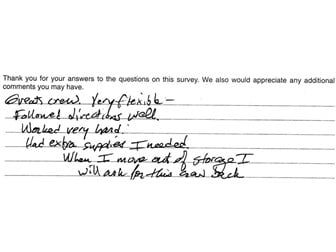 Thank you for your answers to the questions on this survey. We also would appreciate any additional
comments you may have.
Great crew. Very flexible –
Followed directions well.
Worked very hard.
Had extra supplies I needed.
When I move out of storage I
will ask for this crew back